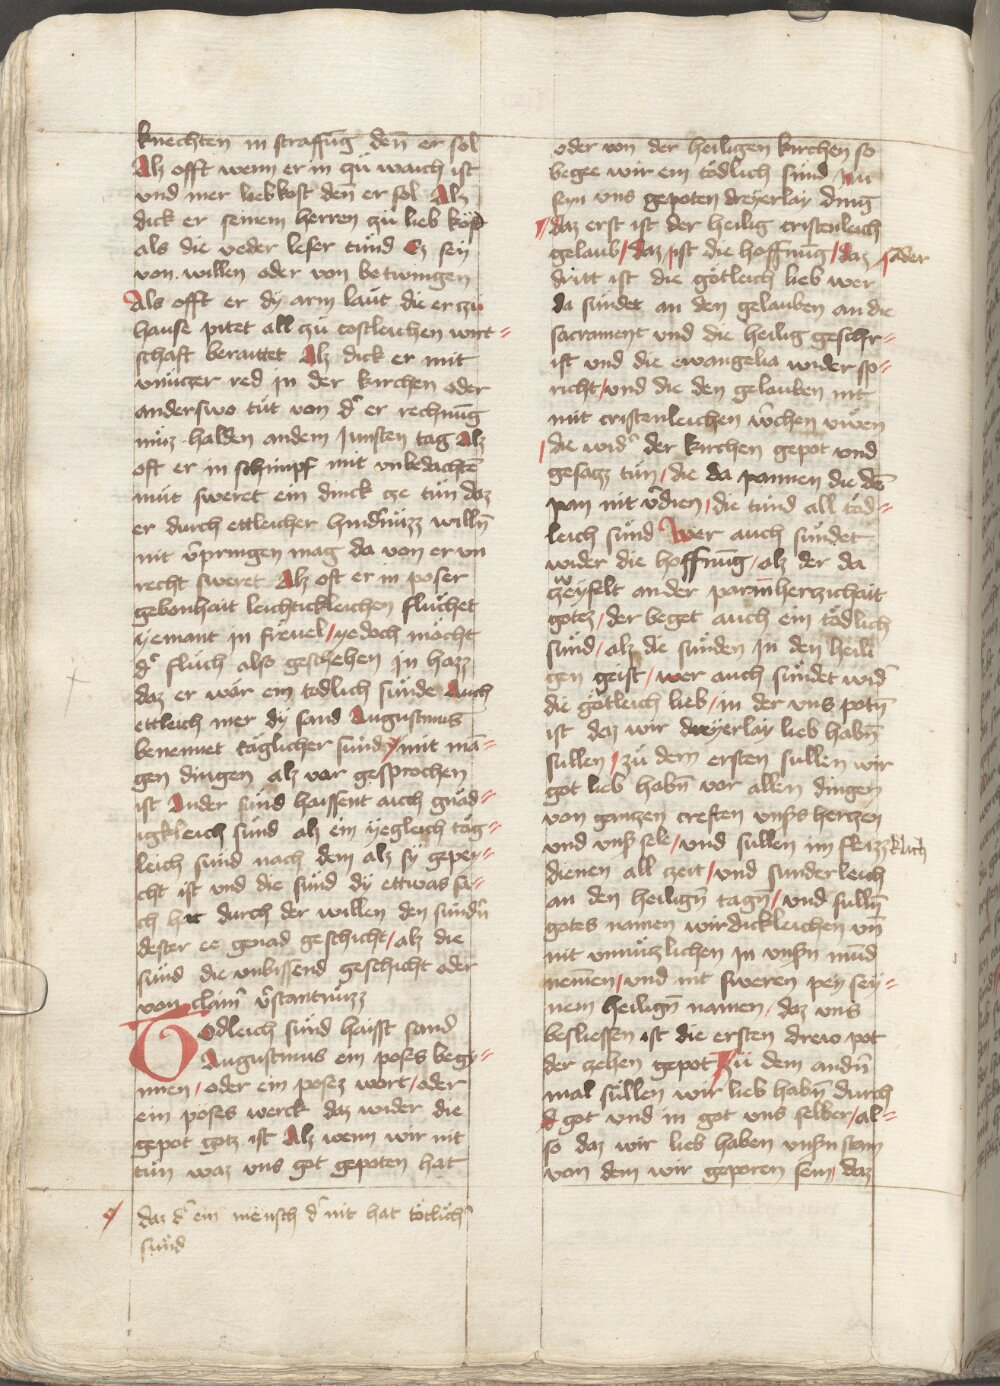 knechten in straffūg deñ er sol
Alz offt wenn er in zü waich ist
vnd mer liebkost deñ er sol Alz
dick er seinem herren zü lieb
als die veder leser tünd Ez sey
von willen oder von betwingen
Als offt er dy arm laüt die er zu
hause pitet all zü costleichen wirt=
schaft beraittet Alz dick er mit
vnüczer red in der kirchen oder
anderswo tüt von d' er rechnūg
müz halden andem Junsten tag Alz
oft er in schimpf mit vnbedachtē
müt sweret ein dinck ze tün daz
er durch ettleicher hind'nüzz willn̄
nit v̄pringen mag da von er vn
recht sweret Alz oft er in poser
gebonhait leichtickleichen flüchet
yemant in freuel / yedoch möcht
d' flüch also geschehen in hazz
daz er wär ein todlich sünde Auch
ettleich mer dy sand Augustinus
benennet täglicher sünd / mit mā=
gen dingen alz vor gesprochen
ist Ander sünd haissent auch gnäd=
igkleich sünd alz ein yegleich täg=
leich sünd nach dem alz sy gepey=
cht ist vnd die sünd dy ettwas sa=
ch hat durch der willen den sündn̄
dester ee genad geschicht / alz die
sünd die vnbissend geschicht oder
von clain' v̄stantnüzz
Todleich sünd haisst sand
Augustinus ein poses begy=
nnen / oder ein posez wort / oder
ein poses werck daz wider die
gepot gotz ist Alz wenn wir nit
tün waz vns got gepoten hat
daz d' ein mensch d' nit hat tötlich'
sünd
oder von der heiligen kirchen so
begee wir ein tödlich sünd Nu
seyn vns gepoten dreyerlay ding
daz erst ist der heilig cristenleich
gelaub / daz ist die hoffnūg / daz
ader
dritt ist die götleich lieb wer
da sündet an den gelauben an die
sacrament vnd die heilig geschr=
ift vnd die ewangelia wider sp=
richt / vnd die den gelauben nit
mit cristenleichen w̄chen vwen
die wid' der kirchen gepot vnd
gesacz tün / die da pannen die dē
pan nit v̄dien / die tünd all töd=
leich sünd Wer auch sündet
wider die hoffnūg / alz der da
zweyfelt an der parmherczichait
gotez / der beget auch ein tödlich
sünd / alz die sünden in den heili
gen geist / wer auch sündet wid'
die götleich lieb / in der vns potn̄
ist daz wir dreyerlay lieb habn̄
sullen / zü dem ersten sullen wir
got lieb habn̄ vor allen dingen
von ganzen creften vnsers herczen
vnd vnser sele / vnd sullen im fleizzklich
dienen all zeit / vnd sunderleich
an den heilign̄ tagn̄ / vnd sulln̄
gotes namen wirdickleichen vn̄
nit vnnüczlichen in vnsern mūd
nemen / vnd nit sweren pey sey=
nem heilign̄ namen / daz vns
besliessen ist die ersten drew pot
der zehen gepot Zü dem andn̄
mal süllen wir lieb habn̄ durch
got vnd in got vns selber / al=
so daz wir lieb haben vnsern stam
von dem wir geporen sein / daz